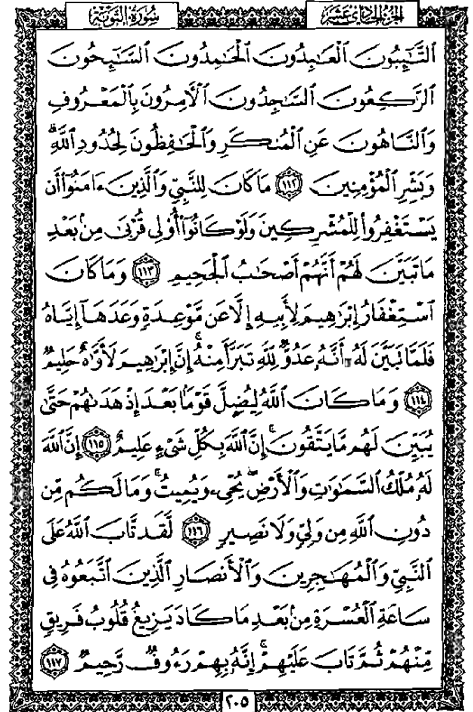 الجزء الحادي عشر
سورة التوبة
ٱلتَّٰٓئِبُونَ ٱلْعَٰبِدُونَ ٱلْحَٰمِدُونَ ٱلسَّٰٓئِحُونَ
ٱلرَّٰكِعُونَ ٱلسَّٰجِدُونَ ٱلْءَامِرُونَ بِٱلْمَعْرُوفِ
وَٱلنَّاهُونَ عَنِ ٱلْمُنكَرِ وَٱلْحَٰفِظُونَ لِحُدُودِ ٱللَّهِۗ
وَبَشِّرِ ٱلْمُؤْمِنِينَ ١١٢ مَا كَانَ لِلنَّبِىِّ وَٱلَّذِينَ ءَامَنُوٓا۟ أَن
يَسْتَغْفِرُوا۟ لِلْمُشْرِكِينَ وَلَوْ كَانُوٓا۟ أُو۟لِى قُرْبَىٰ مِنۢ بَعْدِ
مَا تَبَيَّنَ لَهُمْ أَنَّهُمْ أَصْحَٰبُ ٱلْجَحِيمِ ١١٣ وَمَا كَانَ
ٱسْتِغْفَارُ إِبْرَٰهِيمَ لِأَبِيهِ إِلَّا عَن مَّوْعِدَةٍ وَعَدَهَآ إِيَّاهُ
فَلَمَّا تَبَيَّنَ لَهُۥٓ أَنَّهُۥ عَدُوٌّ لِّلَّهِ تَبَرَّأَ مِنْهُۚ إِنَّ إِبْرَٰهِيمَ لَأَوَّٰهٌ حَلِيمٌ
١١٤ وَمَا كَانَ ٱللَّهُ لِيُضِلَّ قَوْمًۢا بَعْدَ إِذْ هَدَىٰهُمْ حَتَّىٰ
يُبَيِّنَ لَهُم مَّا يَتَّقُونَۚ إِنَّ ٱللَّهَ بِكُلِّ شَىْءٍ عَلِيمٌ ١١٥ إِنَّ ٱللَّهَ
لَهُۥ مُلْكُ ٱلسَّمَٰوَٰتِ وَٱلْأَرْضِۖ يُحْىِۦ وَيُمِيتُۚ وَمَا لَكُم مِّن
دُونِ ٱللَّهِ مِن وَلِىٍّ وَلَا نَصِيرٍ ١١٦ لَّقَد تَّابَ ٱللَّهُ عَلَى
ٱلنَّبِىِّ وَٱلْمُهَٰجِرِينَ وَٱلْأَنصَارِ ٱلَّذِينَ ٱتَّبَعُوهُ فِى
سَاعَةِ ٱلْعُسْرَةِ مِنۢ بَعْدِ مَا كَادَ يَزِيغُ قُلُوبُ فَرِيقٍ
مِّنْهُمْ ثُمَّ تَابَ عَلَيْهِمْۚ إِنَّهُۥ بِهِمْ رَءُوفٌ رَّحِيمٌ ١١٧
٢٠٥